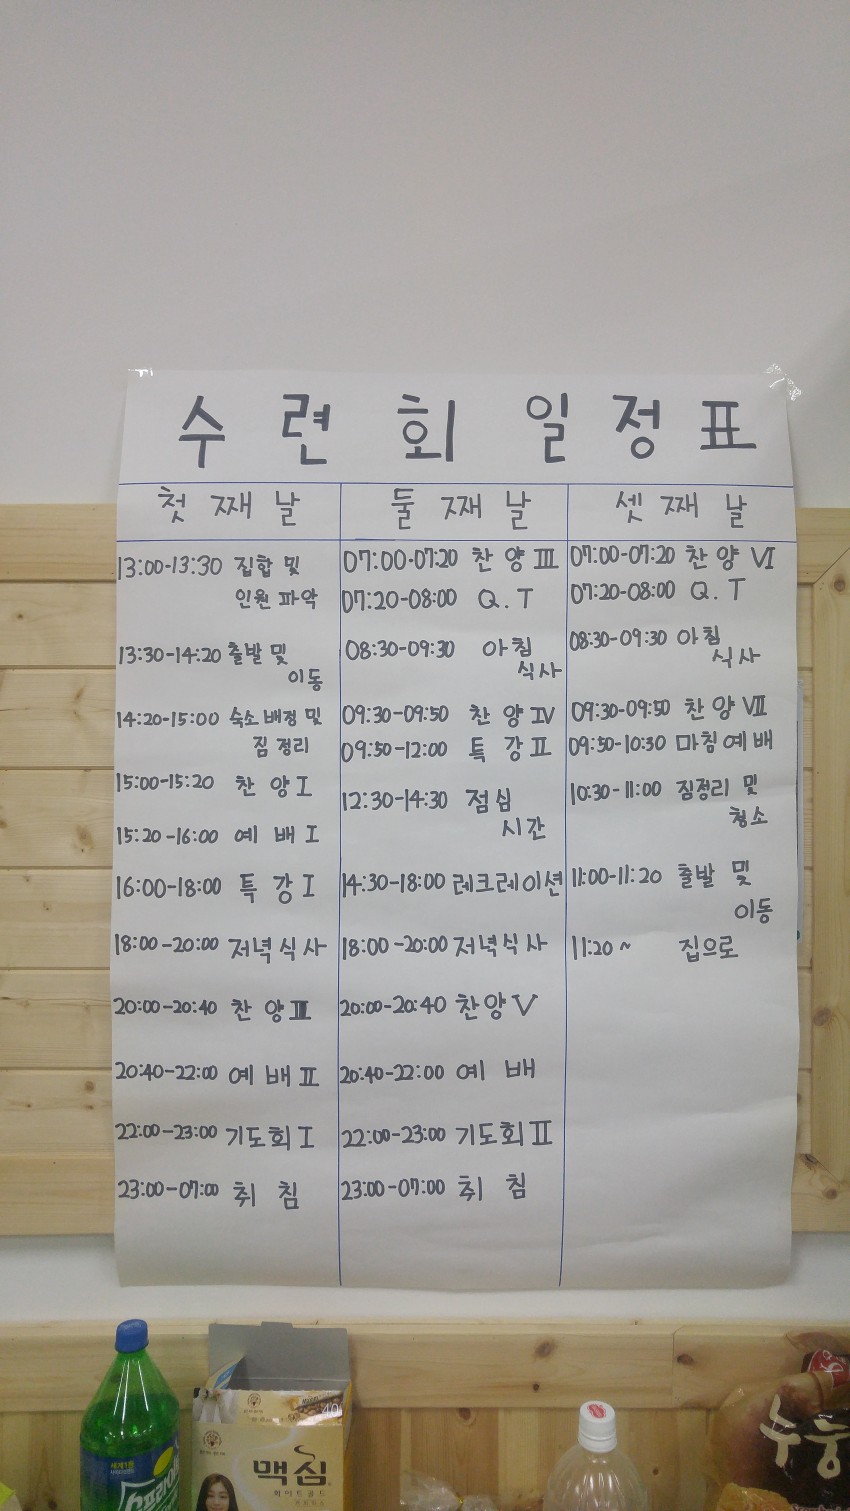 수련회 일정표
첫째날
13:00-13:30 집합 및
인원 파악
13:30-14:20 출발 및
이동
14:20-15:00 숙소 배정 및
짐 정리
15:00-15:20 찬양 I
15:20-16:00 예배 I
16:00-18:00 특강 I
18:00-20:00 저녁식사
20:00-20:40 찬양 III
20:40-22:00 예배 II
22:00-23:00 기도회 I
23:00-07:00 취침
둘째날
07:00-07:20 찬양 III
07:20-08:00 Q.T
08:30-09:30 아침
식사
09:30-09:50 찬양 IV
09:50-12:00 특강 II
12:30-14:30 점심
시간
14:30-18:00 레크레이션
18:00-20:00 저녁식사
20:00-20:40 찬양 V
20:40-22:00 예배
22:00-23:00 기도회 II
23:00-07:00 취침
셋째날
07:00-07:20 찬양 VI
07:20-08:00 Q.T
08:30-09:30 아침
식사
09:30-09:50 찬양 VII
09:50-10:30 마침예배
10:30-11:00 짐정리 및
청소
11:00-11:20 출발 및
이동
11:20 ~ 집으로
세계1등
스프라이
맥심
화이트골드
40
누룽